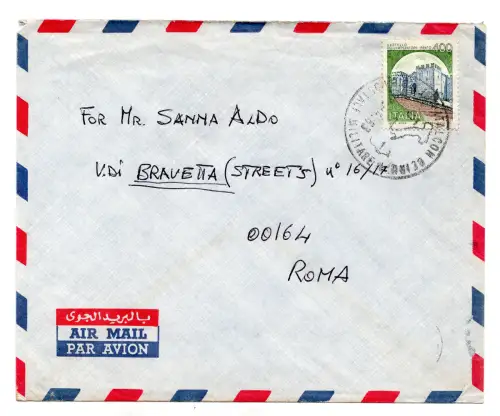 CASTELLO
400
ITALIA
FOR MR. SANNA ALDO
V.DI BRAVETTA (STREETS) n° 16/17
00164
ROMA
بالبريد الجوى
AIR MAIL
PAR AVION